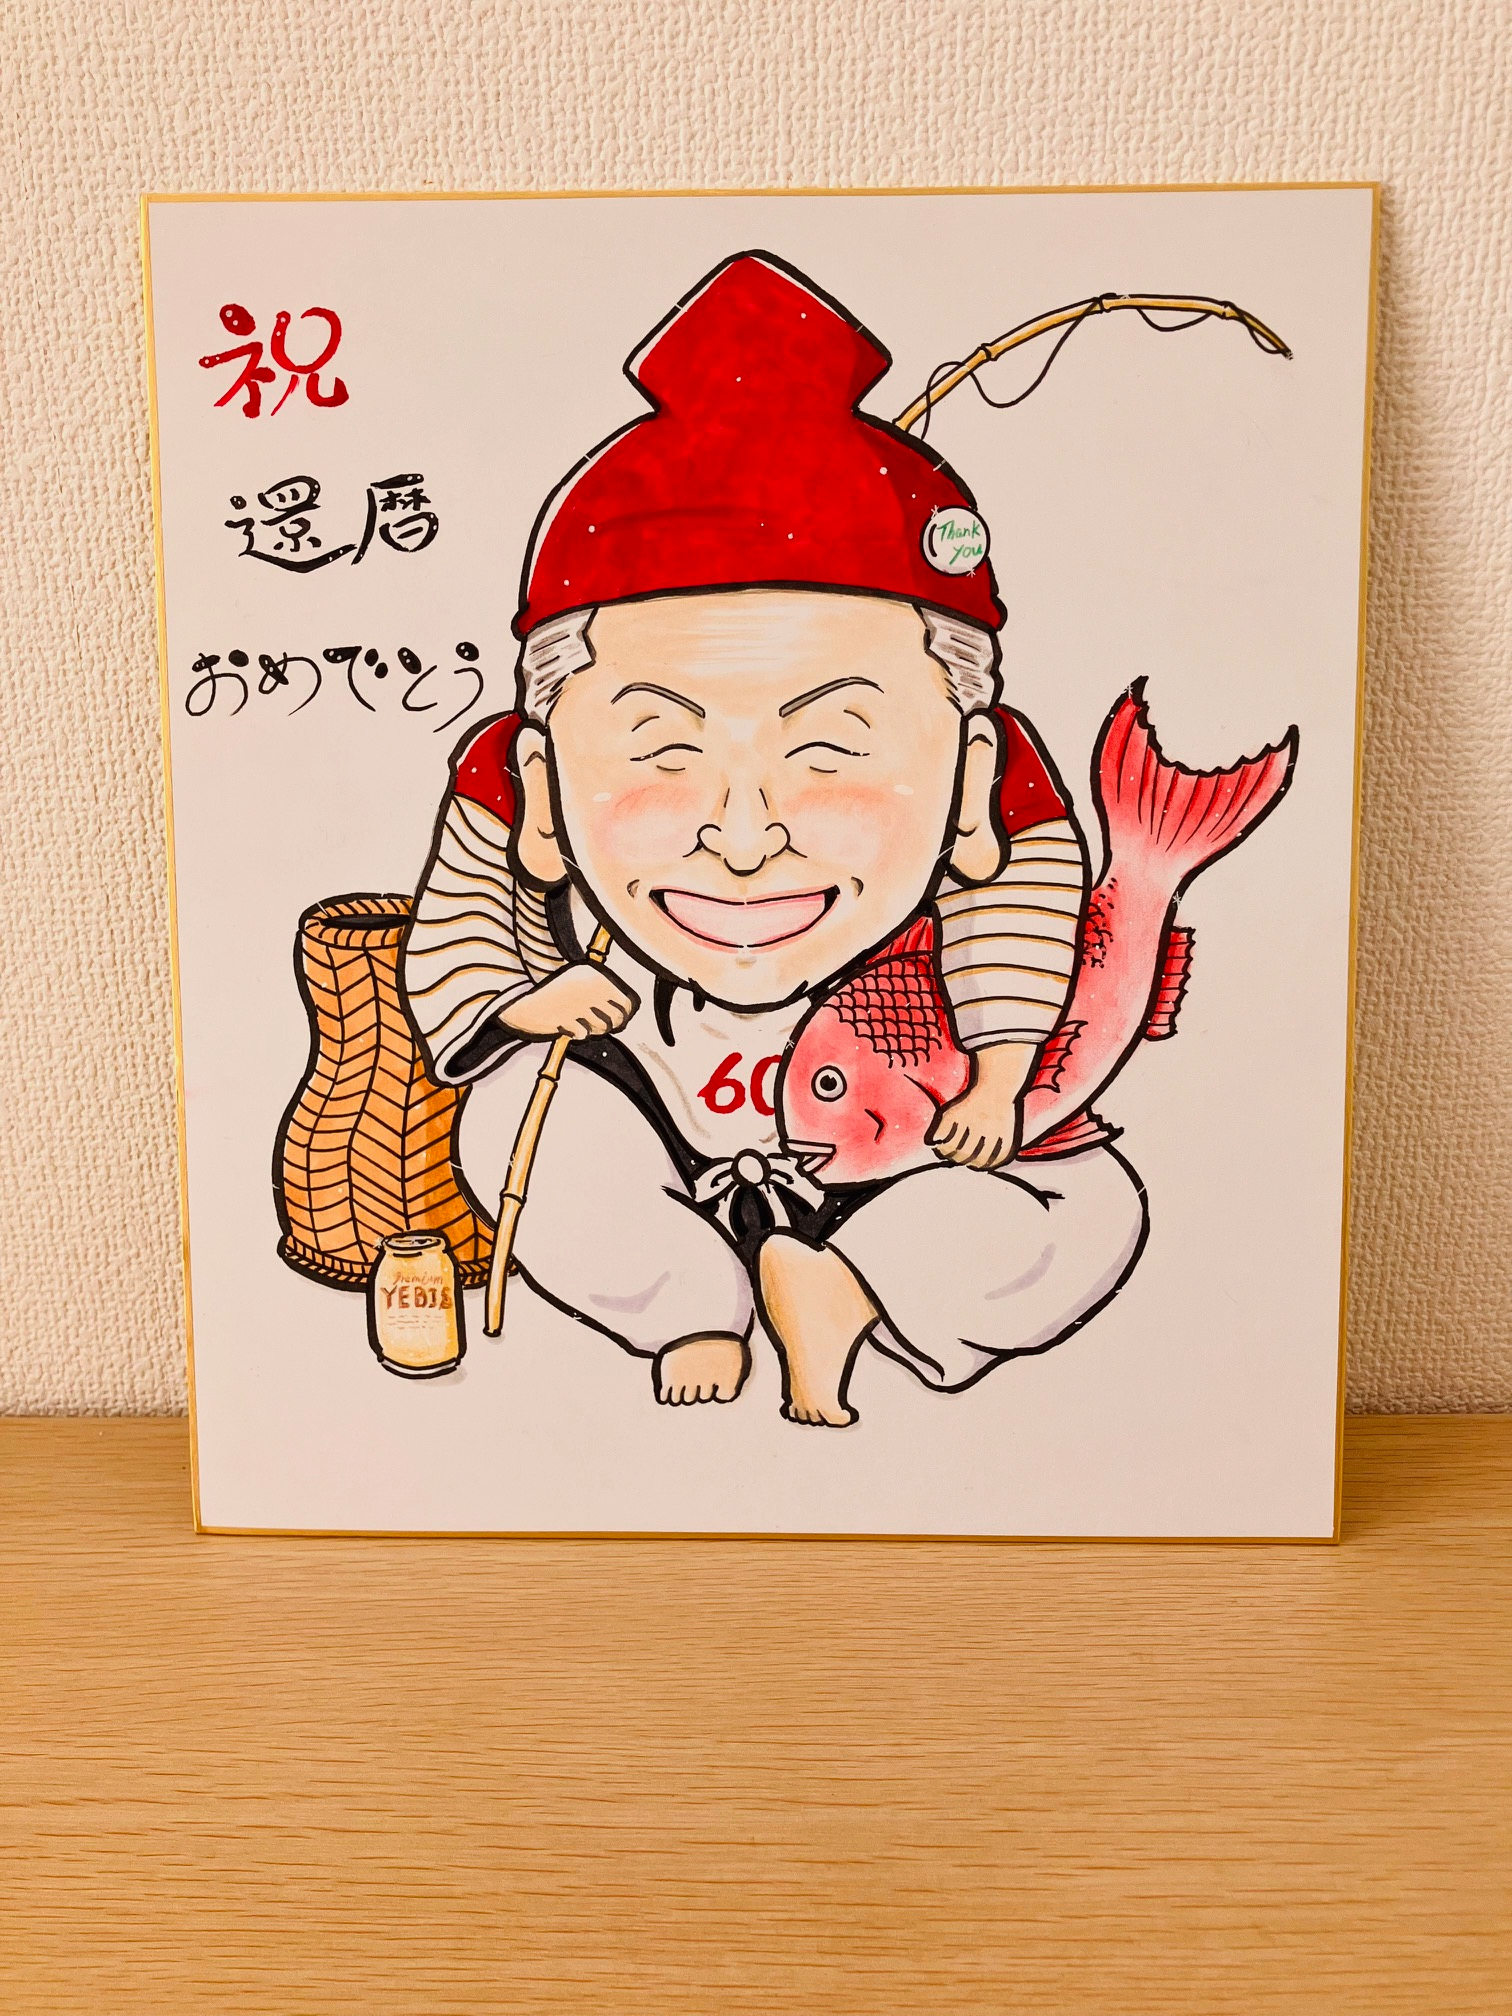 祝
還暦
おめでとう
Thank
you
60
Premium
YEBIS